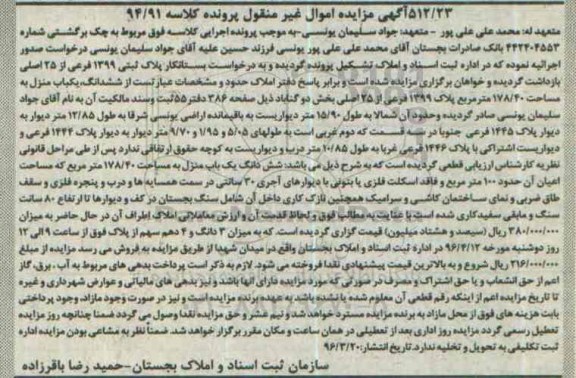 ۵۱۲/۲۳آگهی مزایده اموال غیر منقول پرونده کلاسه ۹۴/۹۱
متعهد له: محمد علی علی پور - متعهد: جواد سلیمان یونسی-به موجب پرونده اجرایی کلاسه فوق مربوط به چک برگشتی شماره
۴۴۲۴۰۴۵۵۳ بانک صادرات بجستان آقای محمد علی علی پور یونسی فرزند حسین علیه آقای جواد سلیمان یونسی درخواست صدور
اجرائیه نموده که در اداره ثبت اسناد و املاک تشکیل پرونده گردیده و به درخواست بستانکار پلاک ثبتی ۱۳۹۹ فرعی از ۲۵ اصلی
بازداشت گردیده و خواهان برگزاری مزایده شده است و برابر پاسخ دفتر املاک حدود و مشخصات عبارتست از ششدانگ، یکباب منزل به
مساحت ۱۷۸/۴۰ مترمربع پلاک ۱۳۹۹ فرعی از ۲۵ اصلی بخش دو گناباد ذیل صفحه ۳۸۶ دفتر ۵۵ ثبت وسند مالکیت آن به نام آقای جواد
سلیمان یونسی صادر گردیده وحدود آن شمالا به طول ۱۵/۹۰ متر دیواریست به باقیمانده اراضی یونسی شرقا به طول ۱۲/۸۵ متر دیوار به
دیوار پلاک ۱۴۴۵ فرعی جنوبا در سه قسمت که دوم غربی است به طولهای ۵/۰۵ و ۱/۹۵ و ۹/۷۰ متر دیوار به دیوار پلاک ۱۴۴۴ فرعی و
دیواریست اشتراکی با پلاک ۱۴۴۶ فرعی غربا به طول ۱۰/۸۵ متر درب و دیواریست به کوچه حقوق ارتفاقی ندارد پس از طی مراحل قانونی
نظریه کارشناس ارزیابی قطعی گردیده است که به شرح ذیل می باشد: شش دانگ یک باب منزل به مساحت ۱۷۸/۴۰ متر مربع که مساحت
اعیان آن حدود ۱۰۰ متر مربع و فاقد اسکلت فلزی یا بتونی با دیوارهای آجری ۳۰ سانتی در سمت همسایه ها و درب و پنجره فلزی و سقف
طاق ضربی و نمای ساختمان کاشی و سرامیک همچنین نازک کاری داخل آن شامل سنگ بجستان در کف و دیوارها تا ارتفاع ۸۰ سانت
سنگ و مابقی سفیدکاری شده است با عنایت به مطالب فوق و لحاظ قدمت آن و ارزش معاملاتی املاک اطراف آن در حال حاضر به میزان
۳۸۰/۰۰۰/۰۰۰ ریال (سیصد و هشتاد میلیون) قیمت گزاری گردیده است. که به میزان ۳ دانگ و ۴ دهم سهم از پلاک فوق از ساعت ۹ الی ۱۲
روز دوشنبه مورخه ۹۶/۴/۱۲ در اداره ثبت اسناد و املاک بجستان واقع در میدان شهدا از طریق مزایده به فروش می رسد مزایده از مبلغ
۲۱۶/۰۰۰/۰۰۰ ریال شروع و به بالاترین قیمت پیشنهادی نقدا فروخته می شود. لازم به ذکر است پرداخت بدهی های مربوط به آب، برق، گاز
اعم از حق انشعاب و یا حق اشتراک و مصرف در صورتی که مورد مزایده دارای آنها باشد و نیز بدهی های مالیاتی و عوارض شهرداری و غیره
تا تاریخ مزایده اعم از اینکه رقم قطعی آن معلوم شده یا نشده باشد به عهده برنده مزایده است و نیز در صورت وجود مازاد، وجوه پرداختی
بابت هزینه های فوق از محل مازاد به برنده مزایده مسترد خواهد شد و نیم عشر و حق مزایده نقدا وصول می گردد ضمنا چنانچه روز مزایده
تعطیل رسمی گردد مزایده روز اداری بعد از تعطیلی در همان ساعت و مکان مقرر برگزار خواهد شد. ضمناً نظر به مشاعی بودن مزایده اداره
ثبت تکلیفی به تحویل و تخلیه ندارد. تاریخ انتشار: ۹۶/۳/۲۰
سازمان ثبت اسناد و املاک بجستان-حمید رضا باقرزاده